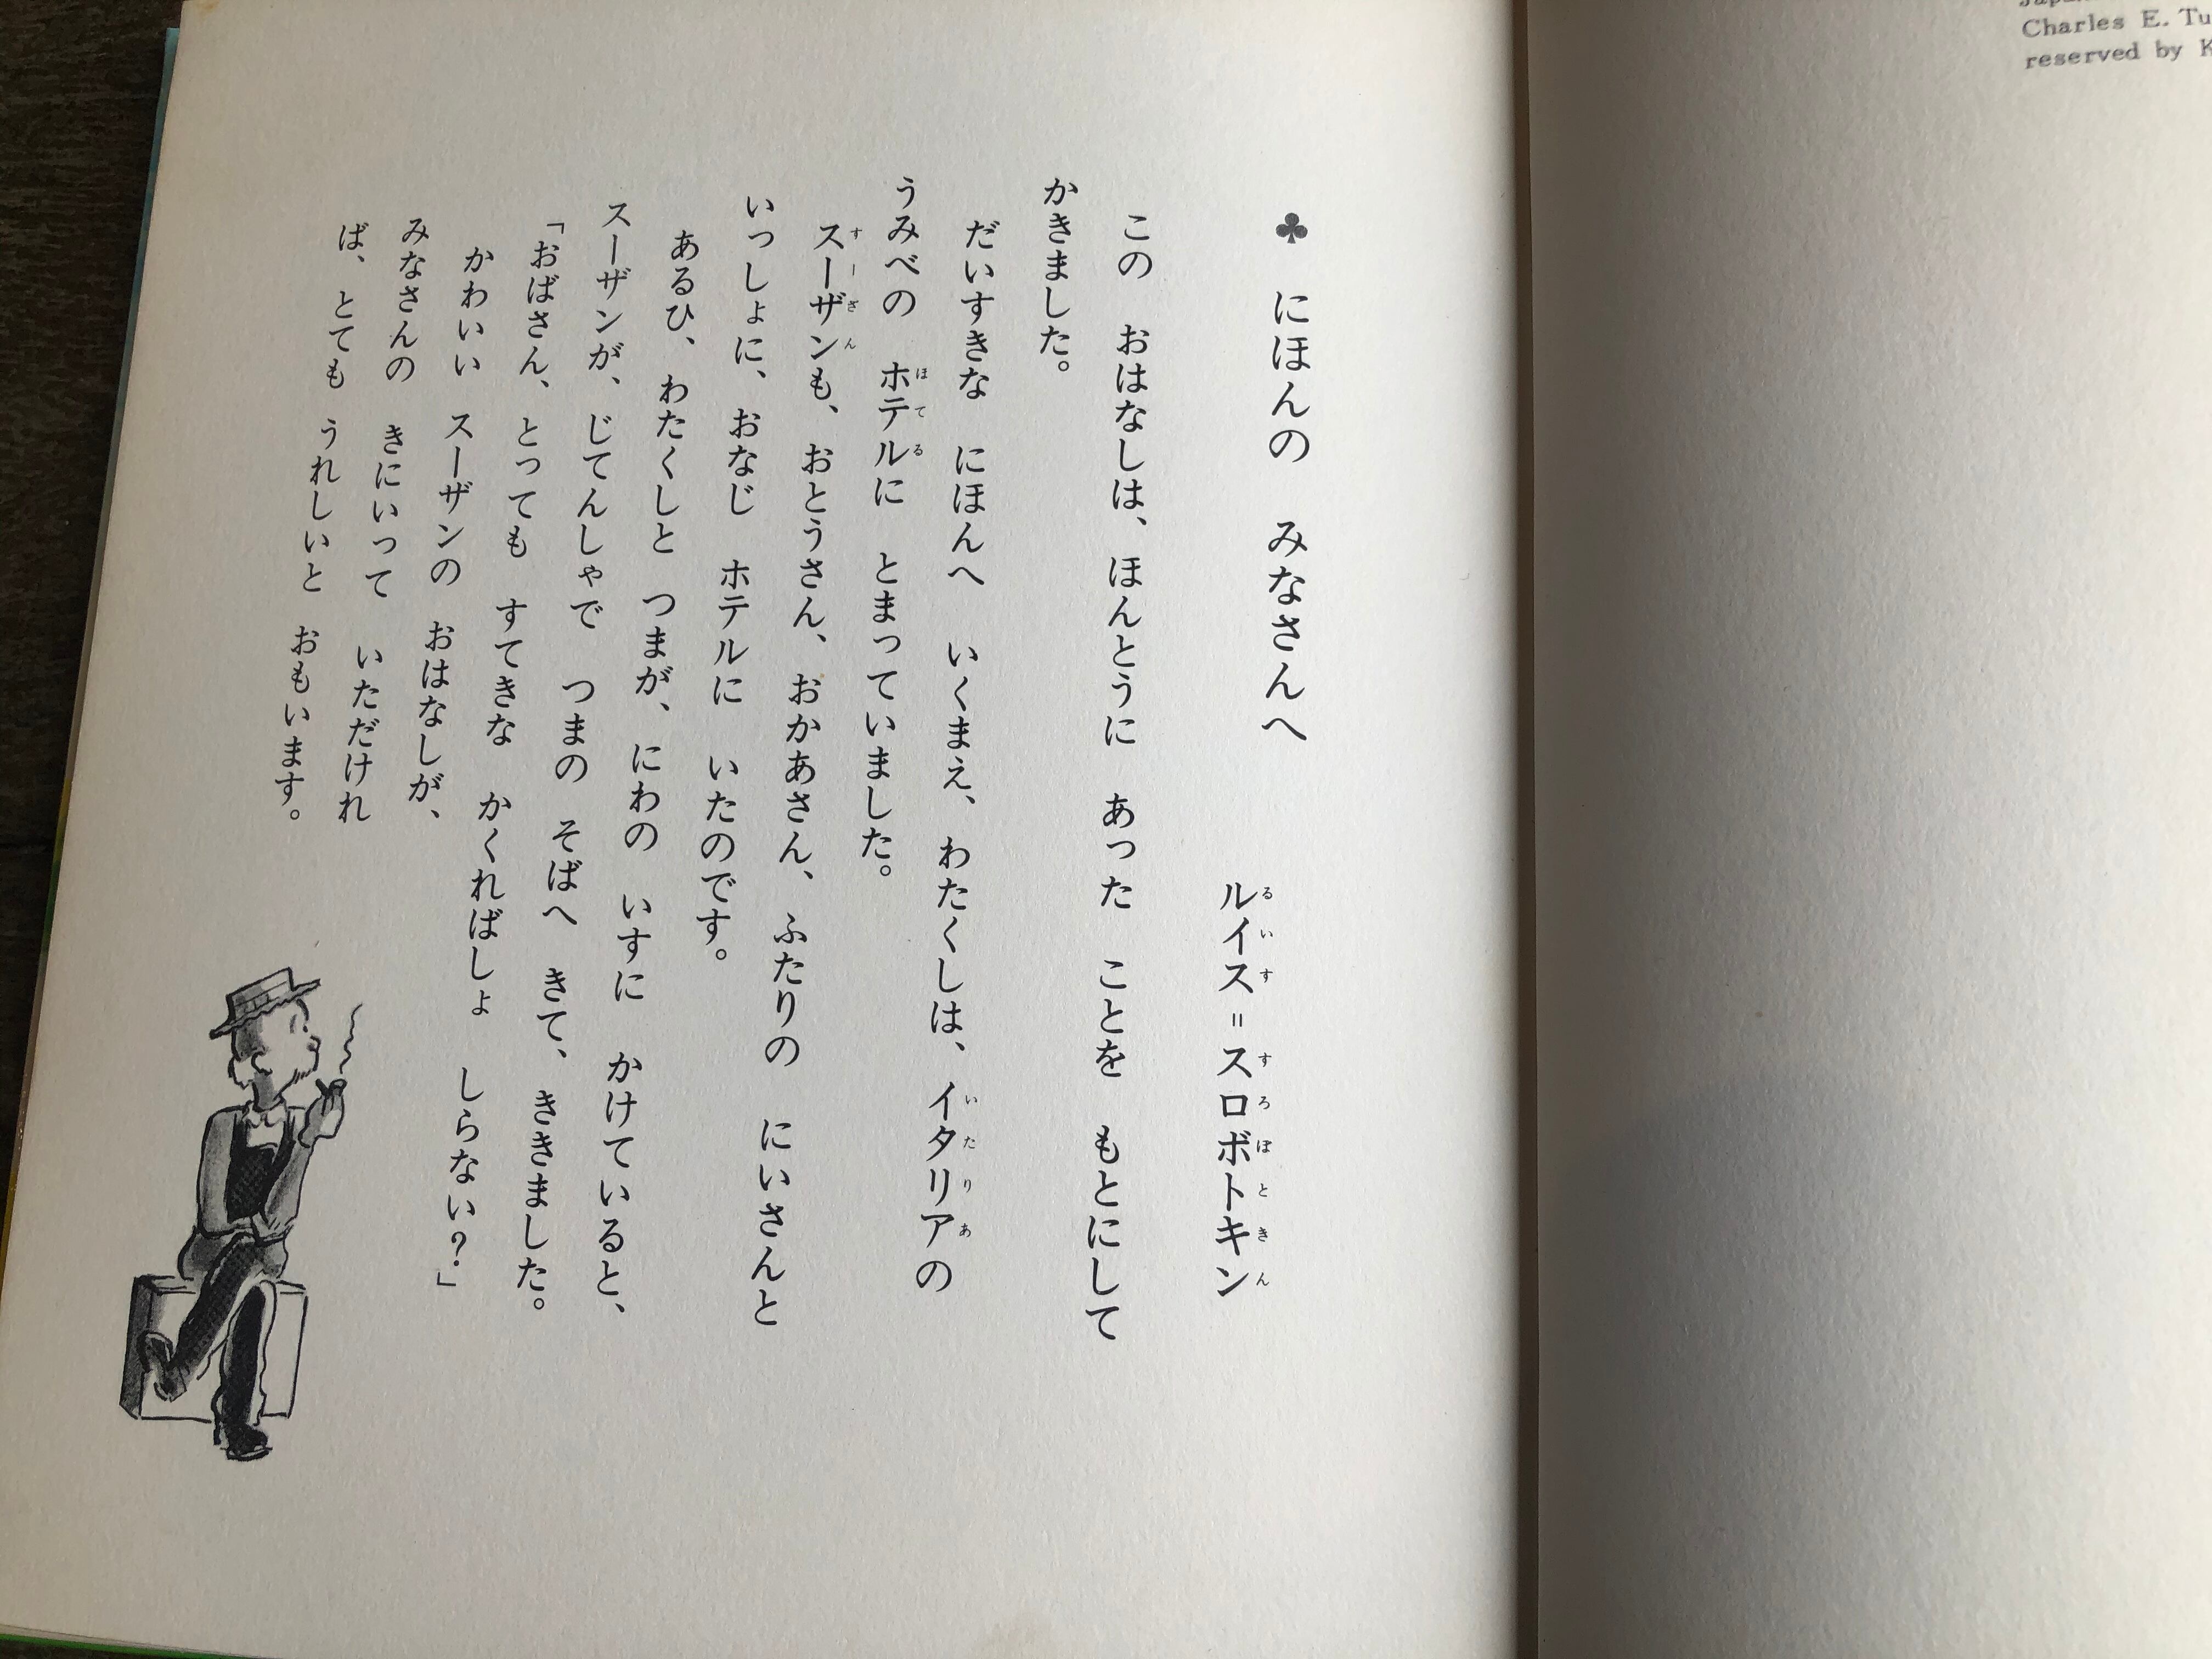 ♣ にほんの みなさんへ
ルイス=スロボトキン
この おはなしは、ほんとうに あった ことを もとにして
かきました。
だいすきな にほんへ いくまえ、わたくしは、イタリアの
うみべの ホテルに とまっていました。
スーザンも、おとうさん、おかあさん、ふたりの にいさんと
いっしょに、おなじ ホテルに いたのです。
あるひ、わたくしと つまが、にわの いすに かけていると、
スーザンが、じてんしゃで つまの そばへ きて、ききました。
「おばさん、とっても すてきな かくればしょ しらない?」
かわいい スーザンの おはなしが、
みなさんの きにいって いただけれ
ば、とても うれしいと おもいます。
Charles E. Tu
reserved by K